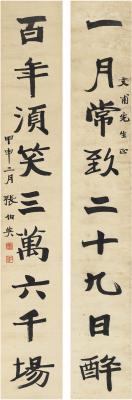 一月常致二十九日醉
文甫先生正
百年須笑三萬六千場
甲申二月 張伯英